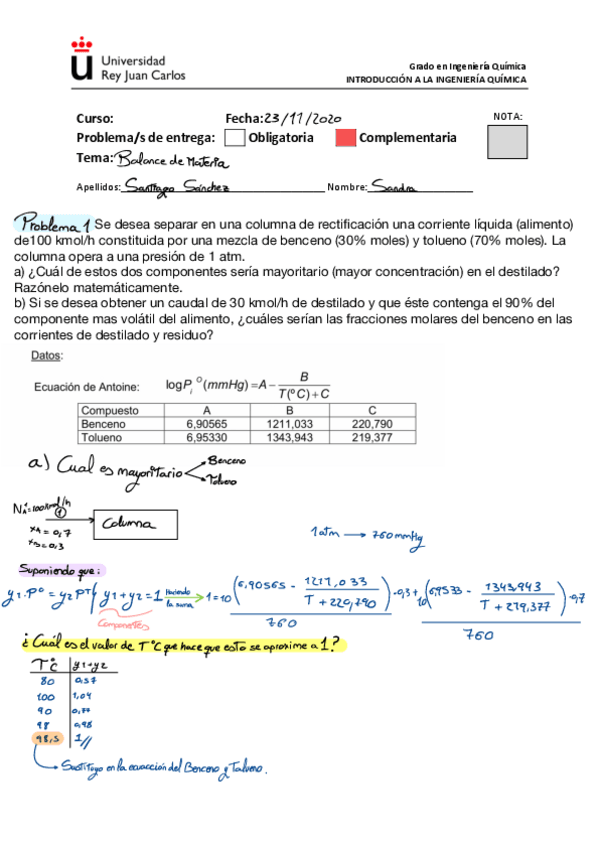 Universidad
Rey Juan Carlos
Grado en Ingeniería Química
INTRODUCCIÓN A LA INGENIERÍA QUÍMICA
Curso: Fecha: 23/11/2020 NOTA:
Problema/s de entrega: Obligatoria Complementaria
Tema: Balance de Materia
Apellidos: Santiago Sánchez Nombre: Sandra
Problema 1 Se desea separar en una columna de rectificación una corriente líquida (alimento)
de100 kmol/h constituida por una mezcla de benceno (30% moles) y tolueno (70% moles). La
columna opera a una presión de 1 atm.
a) ¿Cuál de estos dos componentes sería mayoritario (mayor concentración) en el destilado?
Razónelo matemáticamente.
b) Si se desea obtener un caudal de 30 kmol/h de destilado y que éste contenga el 90% del
componente mas volátil del alimento, ¿cuáles serían las fracciones molares del benceno en las
corrientes de destilado y residuo?
Datos:
Ecuación de Antoine: log P_i^o (mmHg) = A - B / (T(ºC) + C)
Compuesto A B C
Benceno 6,90565 1211,033 220,790
Tolueno 6,95330 1343,943 219,377
a) Cual es mayoritario Benceno
Tolueno
N_A=100kmol/h
①
x_A = 0,7
x_B = 0,3
Columna
1 atm → 760 mmHg
Suponiendo que:
y1·Pº = y2 PT / y1 + y2 = 1 Haciendo la suma → 1 = 10^(6,90565 - 1211,033 / (T + 220,790)) ·0,3 / 760 + 10^(6,9533 - 1343,943 / (T + 219,377)) ·0,7 / 760
Componentes
¿Cuál es el valor de TºC que hace que esto se aproxime a 1?
TºC y1+y2
80 0,57
100 1,04
90 0,77
98 0,98
98,5 1//
Sustituyo en la ecuacción del Benceno y Tolueno.